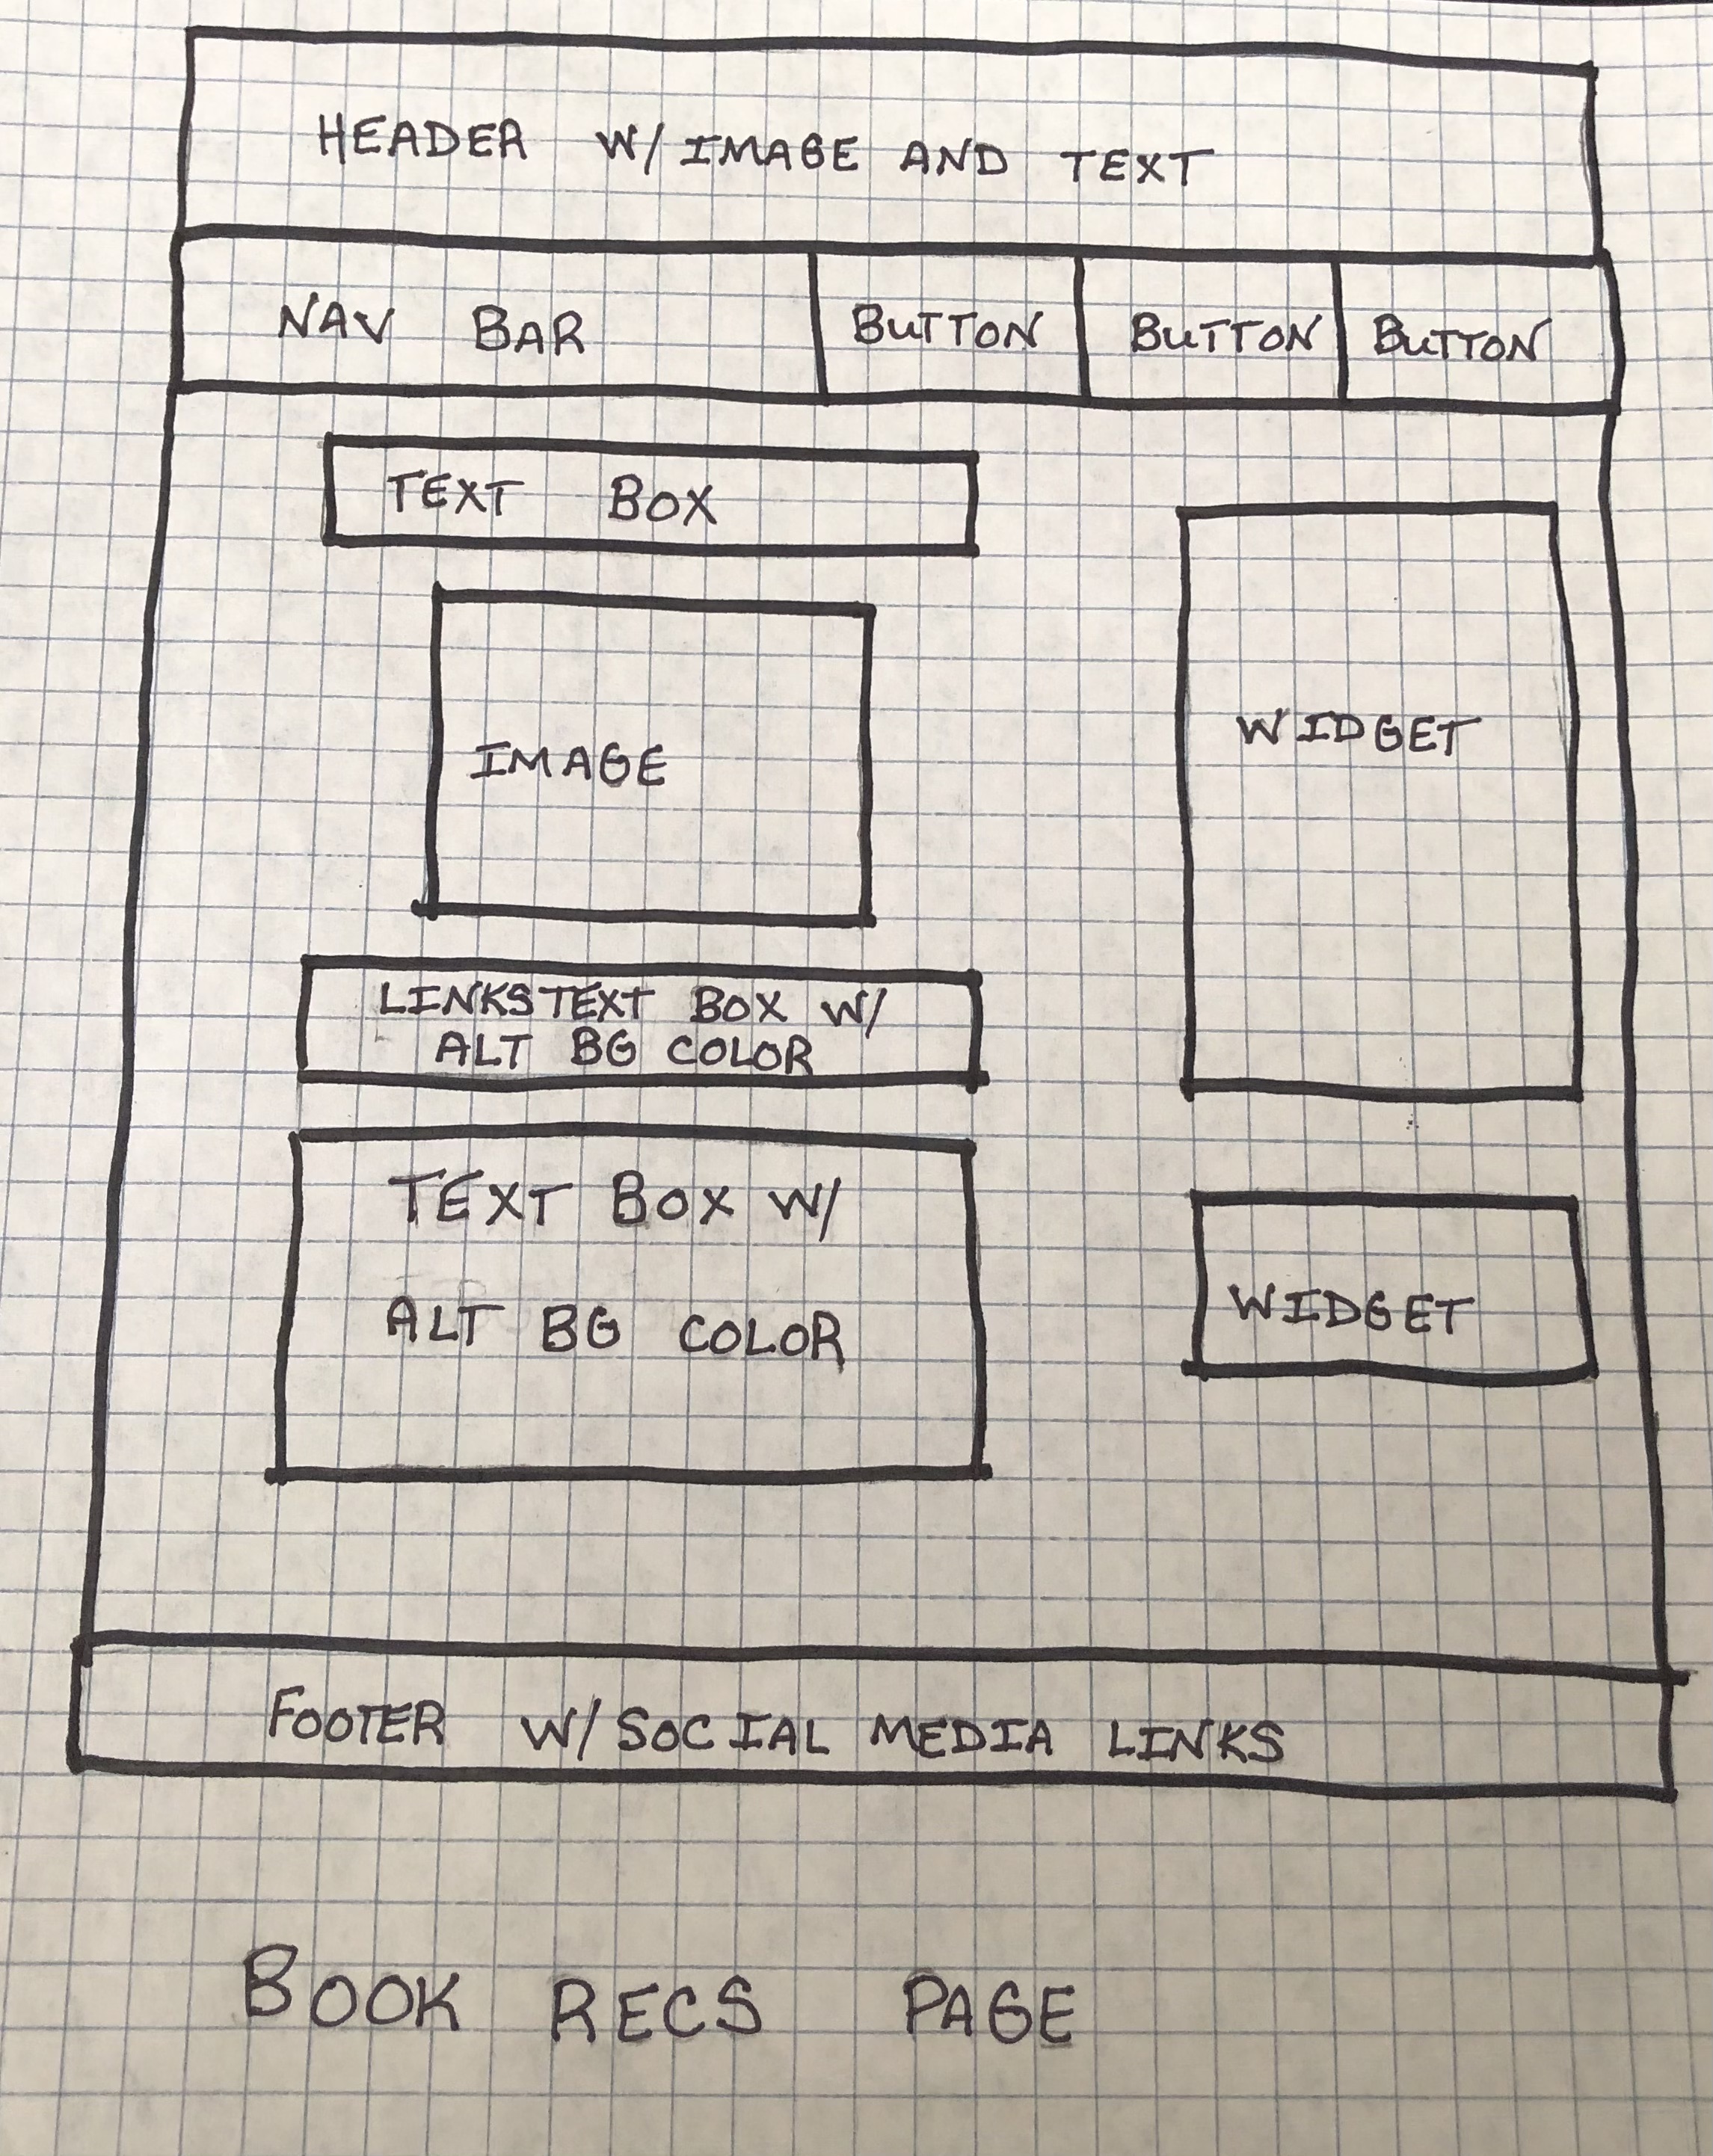 HEADER W/ IMAGE AND TEXT
NAV BAR
BUTTON
BUTTON
BUTTON
TEXT BOX
IMAGE
WIDGET
LINKS TEXT BOX W/
ALT BG COLOR
TEXT BOX W/
ALT BG COLOR
WIDGET
FOOTER W/ SOCIAL MEDIA LINKS
BOOK RECS PAGE